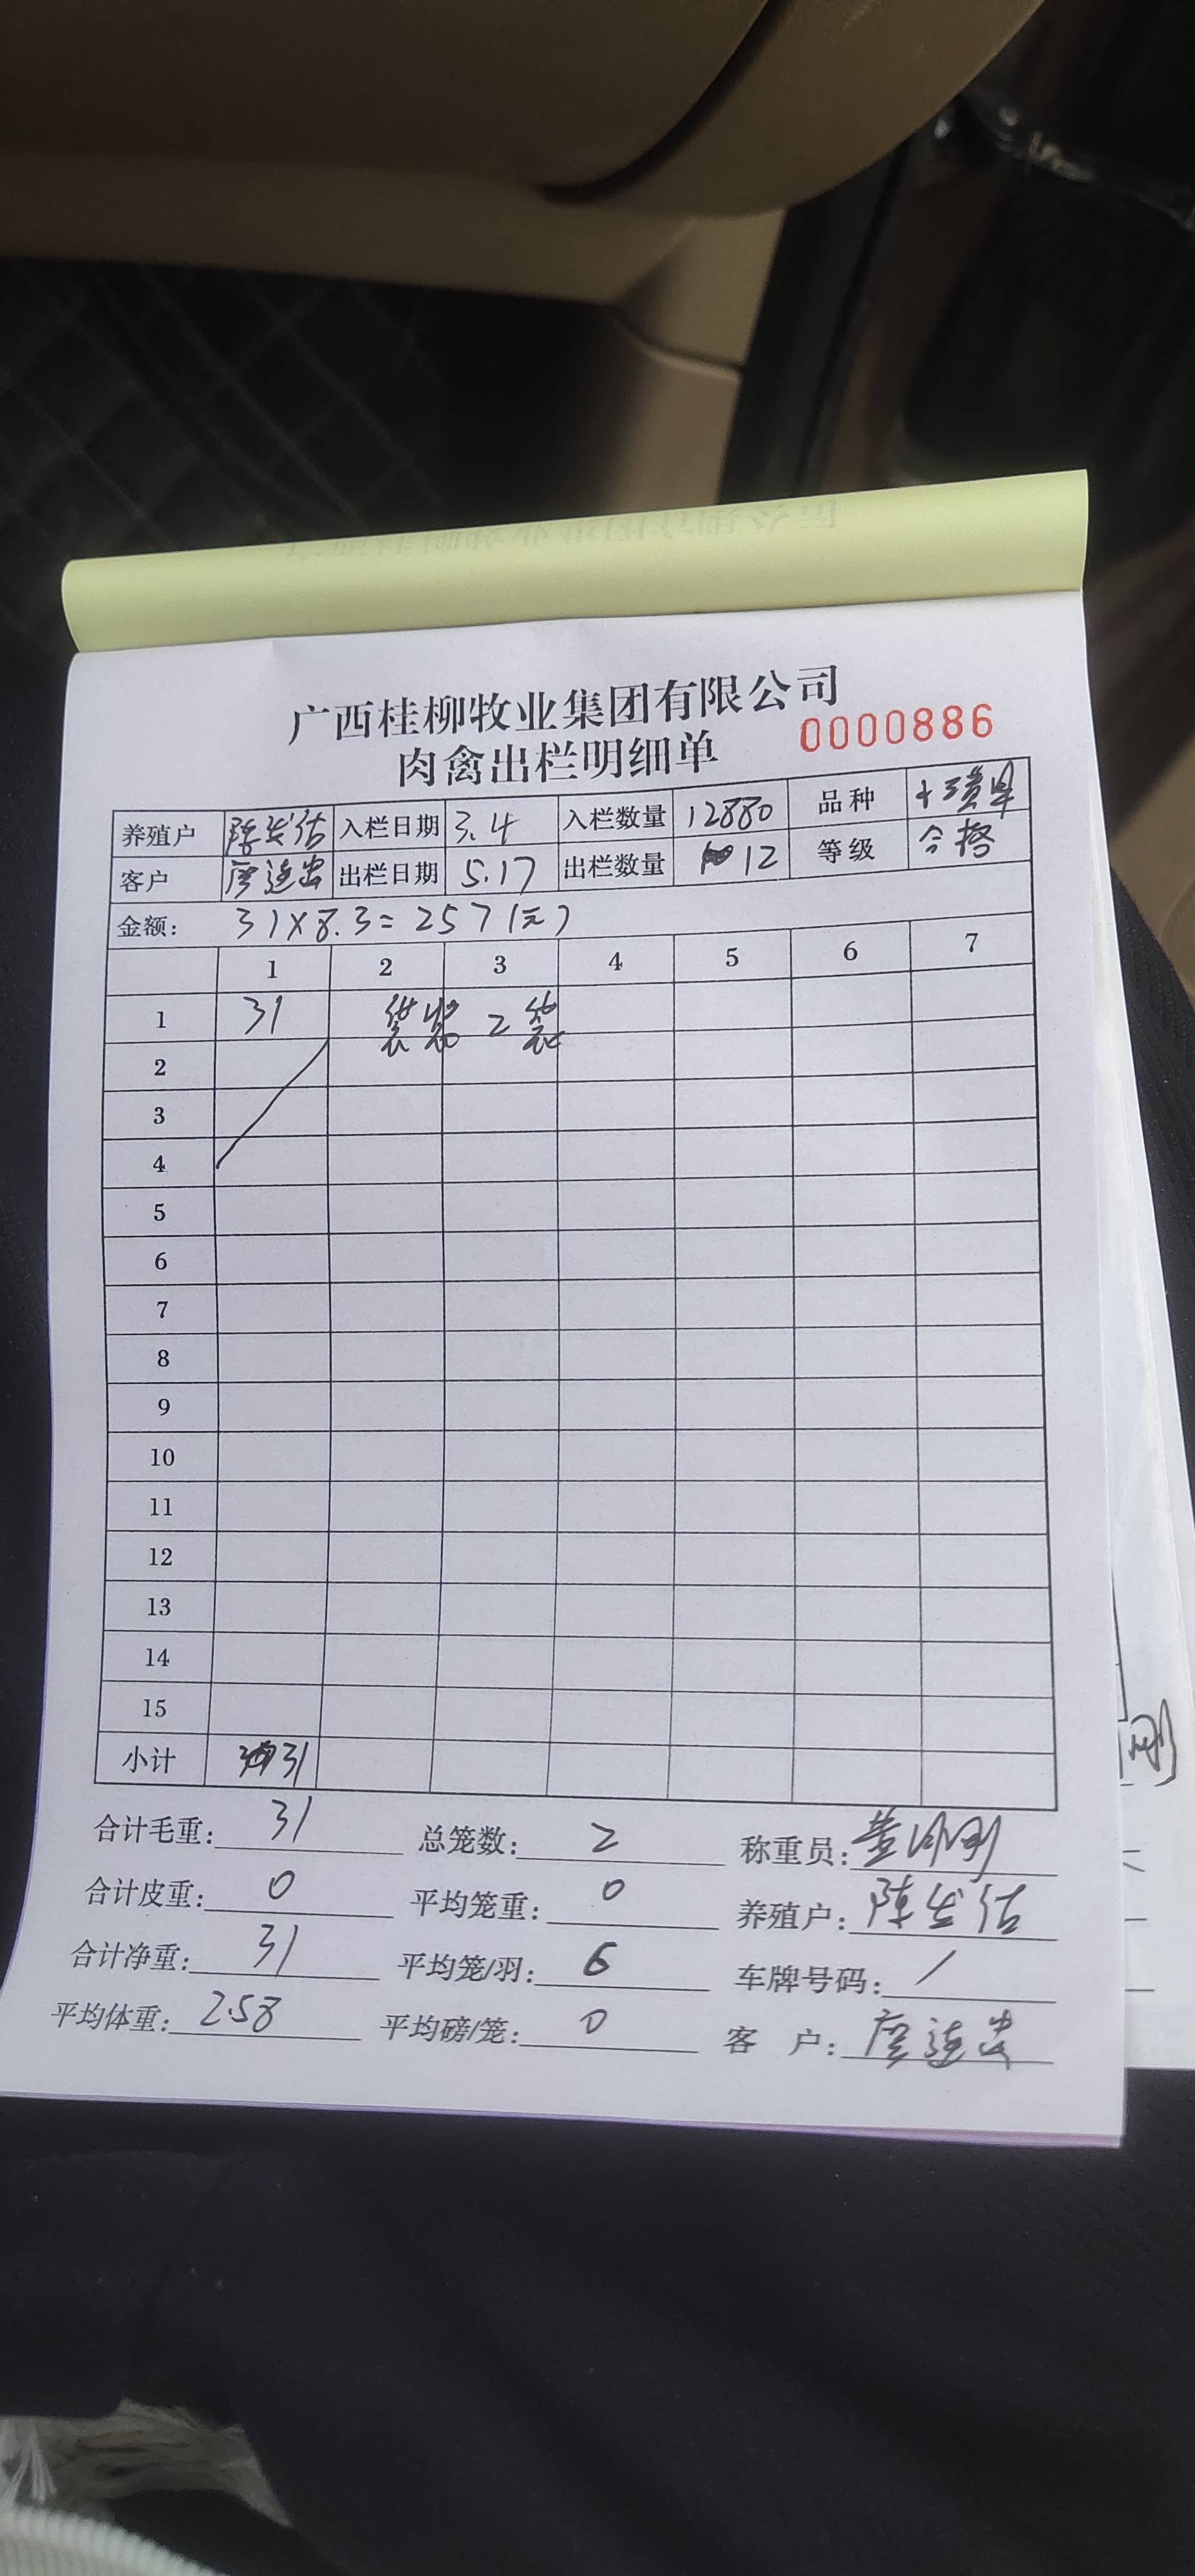 广西桂柳牧业集团有限公司
肉禽出栏明细单 0000886
养殖户 陈发估 入栏日期 3.4 入栏数量 12880 品种
客户 出栏日期 5.17 出栏数量 12 等级 合格
金额: 31×8.3=257(元)
1 2 3 4 5 6 7
1 31 袋装 2袋
2
3
4
5
6
7
8
9
10
11
12
13
14
15
小计 31
合计毛重: 31 总笼数: 2 称重员:
合计皮重: 0 平均笼重: 0 养殖户: 陈发估
合计净重: 31 平均笼/羽: 6 车牌号码: /
平均体重: 2.58 平均磅/笼: 0 客 户: